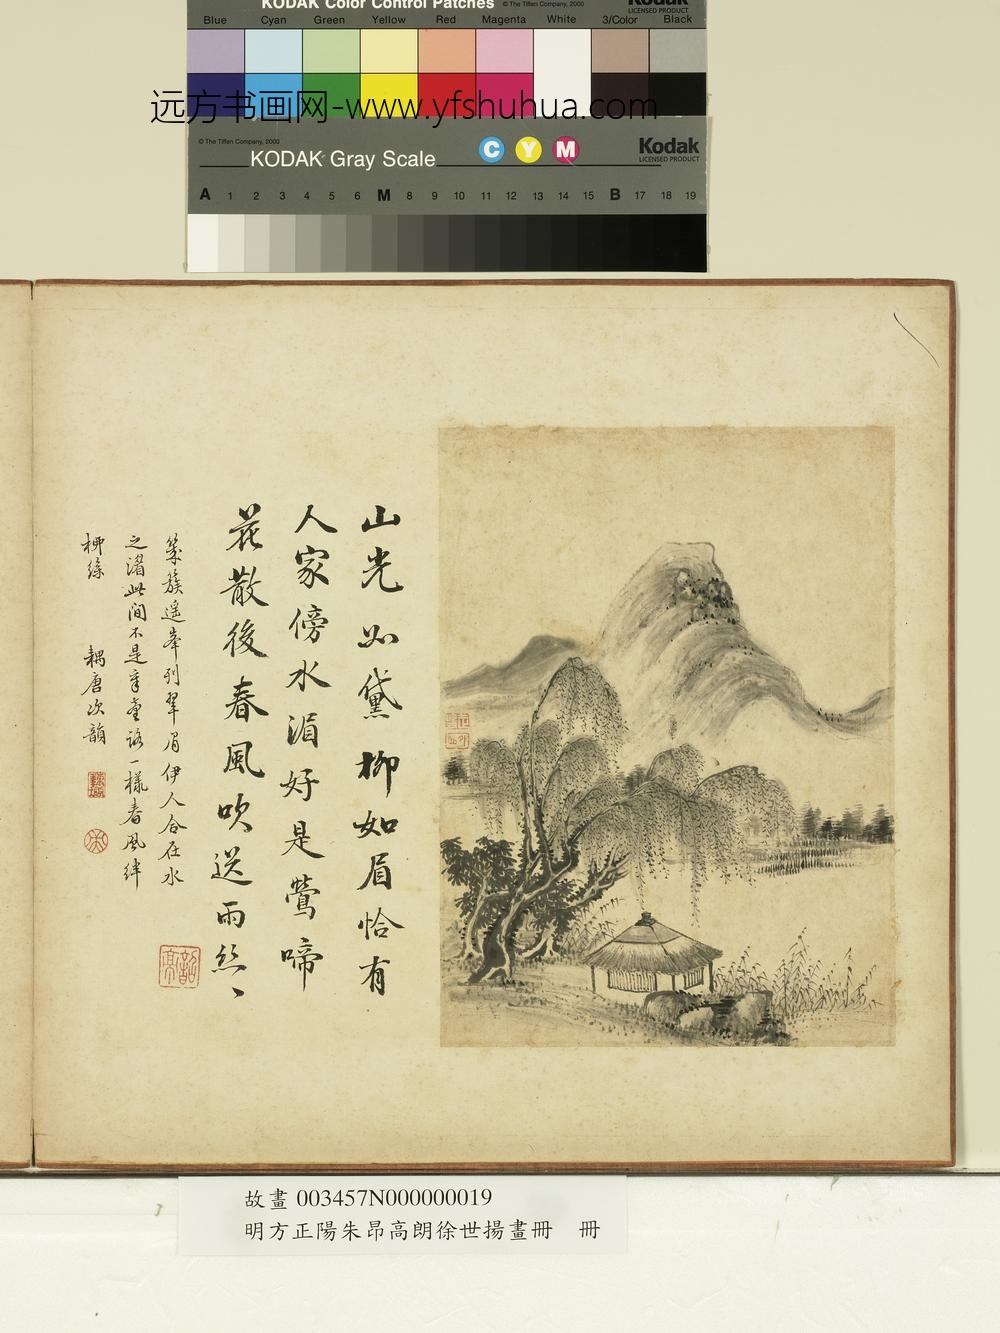 KODAK Color Control Patches © The Tiffen Company, 2000
Kodak
LICENSED PRODUCT
Blue Cyan Green Yellow Red Magenta White 3/Color Black
远方书画网-www.yfshuhua.com
© The Tiffen Company, 2000
KODAK Gray Scale
C Y M
Kodak
LICENSED PRODUCT
A 1 2 3 4 5 6 M 8 9 10 11 12 13 14 15 B 17 18 19
山光如黛柳如眉恰有
人家傍水湄好是鶯啼
花散後春風吹送雨絲絲
簇遥峯列翠眉伊人合在水
之湄此间不是章臺路一樣春風绊
柳絲 耦唐次韻
故畫 003457N000000019
明方正陽朱昂高朗徐世揚畫冊 冊